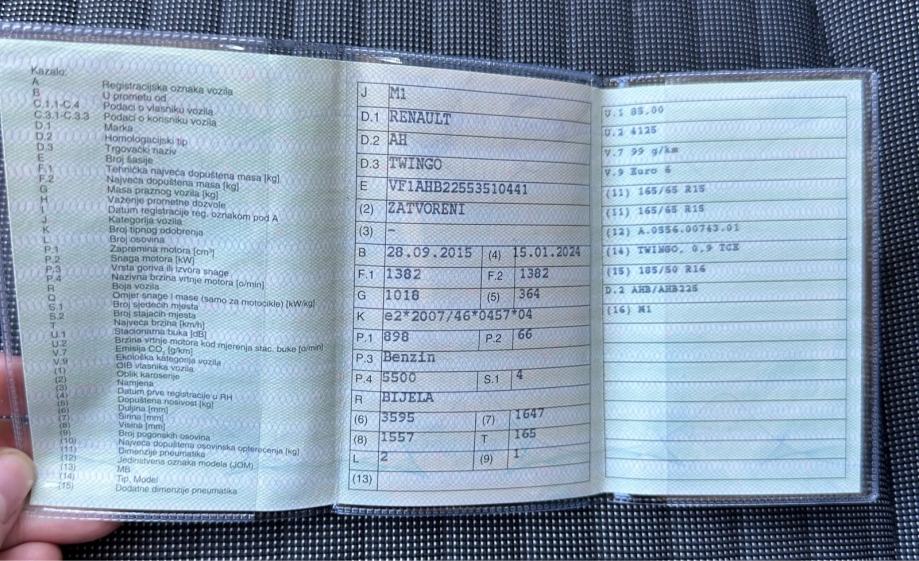 Kazalo:
A Registracijska oznaka vozila
B U prometu od
C.1.1-C.4 Podaci o vlasniku vozila
C.3.1-C.3.3 Podaci o korisniku vozila
D.1 Marka
D.2 Homologacijski tip
D.3 Trgovački naziv
E Broj šasije
F.1 Tehnička najveća dopuštena masa [kg]
F.2 Najveća dopuštena masa [kg]
G Masa praznog vozila [kg]
H Važenje prometne dozvole
I Datum registracije reg. oznakom pod A
J Kategorija vozila
K Broj tipnog odobrenja
L Broj osovina
P.1 Zapremina motora [cm³]
P.2 Snaga motora [kW]
P.3 Vrsta goriva ili izvora snage
P.4 Nazivna brzina vrtnje motora [o/min]
R Boja vozila
Q Omjer snage i mase (samo za motocikle) [kW/kg]
S.1 Broj sjedećih mjesta
S.2 Broj stajaćih mjesta
T Najveća brzina [km/h]
U.1 Stacionarna buka [dB]
U.2 Brzina vrtnje motora kod mjerenja stac. buke [o/min]
V.7 Emisija CO₂ [g/km]
V.9 Ekološka kategorija vozila
(1) OIB vlasnika vozila
(2) Oblik karoserije
(3) Namjena
(4) Datum prve registracije u RH
(5) Dopuštena nosivost [kg]
(6) Duljina [mm]
(7) Širina [mm]
(8) Visina [mm]
(9) Broj pogonskih osovina
(10) Najveća dopuštena osovinska opterećenja [kg]
(11) Dimenzije pneumatika
(12) Jedinstvena oznaka modela (JOM)
(13) MB
(14) Tip, Model
(15) Dodatne dimenzije pneumatika
J M1
D.1 RENAULT
D.2 AH
D.3 TWINGO
E VF1AHB22553510441
(2) ZATVORENI
(3) –
B 28.09.2015 (4) 15.01.2024
F.1 1382 F.2 1382
G 1018 (5) 364
K e2*2007/46*0457*04
P.1 898 P.2 66
P.3 Benzin
P.4 5500 S.1 4
R BIJELA
(6) 3595 (7) 1647
(8) 1557 T 165
L 2 (9) 1
(13)
U.1 85.00
U.2 4125
V.7 99 g/km
V.9 Euro 6
(11) 165/65 R15
(11) 165/65 R15
(12) A.0556.00743.01
(14) TWINGO, 0,9 TCE
(15) 185/50 R16
D.2 AHB/AHB225
(16) M1